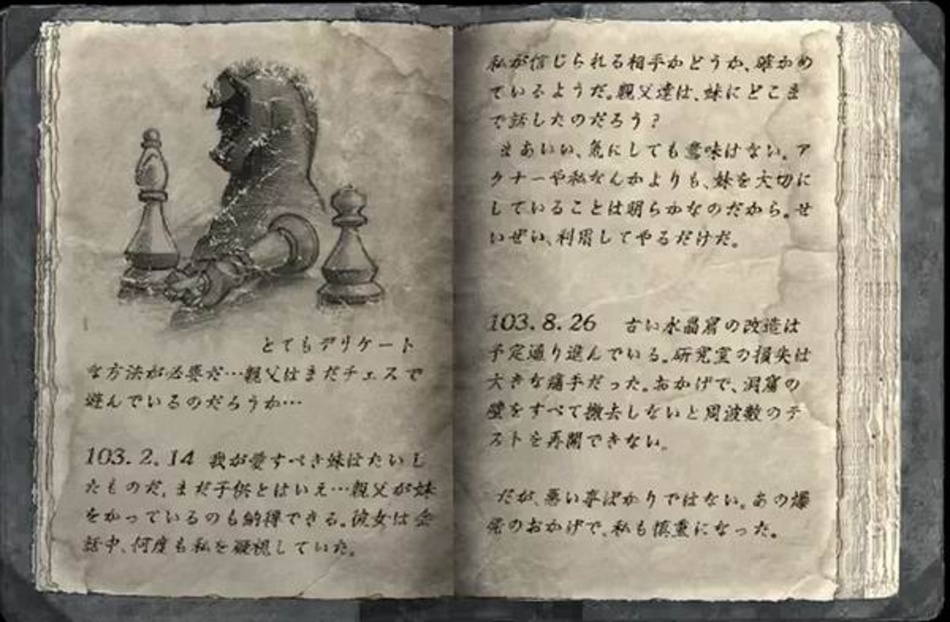 とてもデリケート
な方法が必要だ…親父はまだチェスで
遊んでいるのだろうか…
103.2.14 我が愛すべき妹はたいし
たものだ。まだ子供とはいえ…親父が妹
をかっているのも納得できる。彼女は会
話中、何度も私を凝視していた。
私が信じられる相手かどうか、確かめ
ているようだ。親父達は、妹にどこま
で話したのだろう？
まあいい、気にしても意味はない。ア
クナーや私なんかよりも、妹を大切に
していることは明らかなのだから。せ
いぜい、利用してやるだけだ。
103.8.26 古い水晶窟の改造は
予定通り進んでいる。研究室の損失は
大きな痛手だった。おかげで、洞窟の
壁をすべて撤去しないと周波数のテ
ストを再開できない。
だが、悪い事ばかりではない。あの爆
発のおかげで、私も慎重になった。